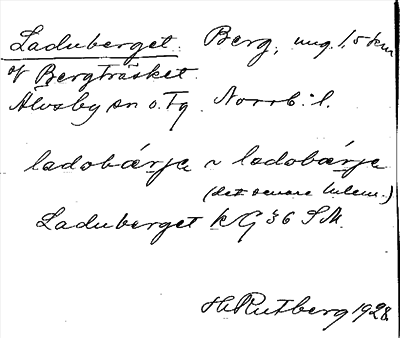 Laduberget. Berg, ung. 1,5 km
of Bergträsket.
Älvsby sn o. Tg. Norrb:s l.
ladobærje ~ ladobærje
(det senare Lulem.)
Laduberget kG 36 SM.
H Rutberg 1928